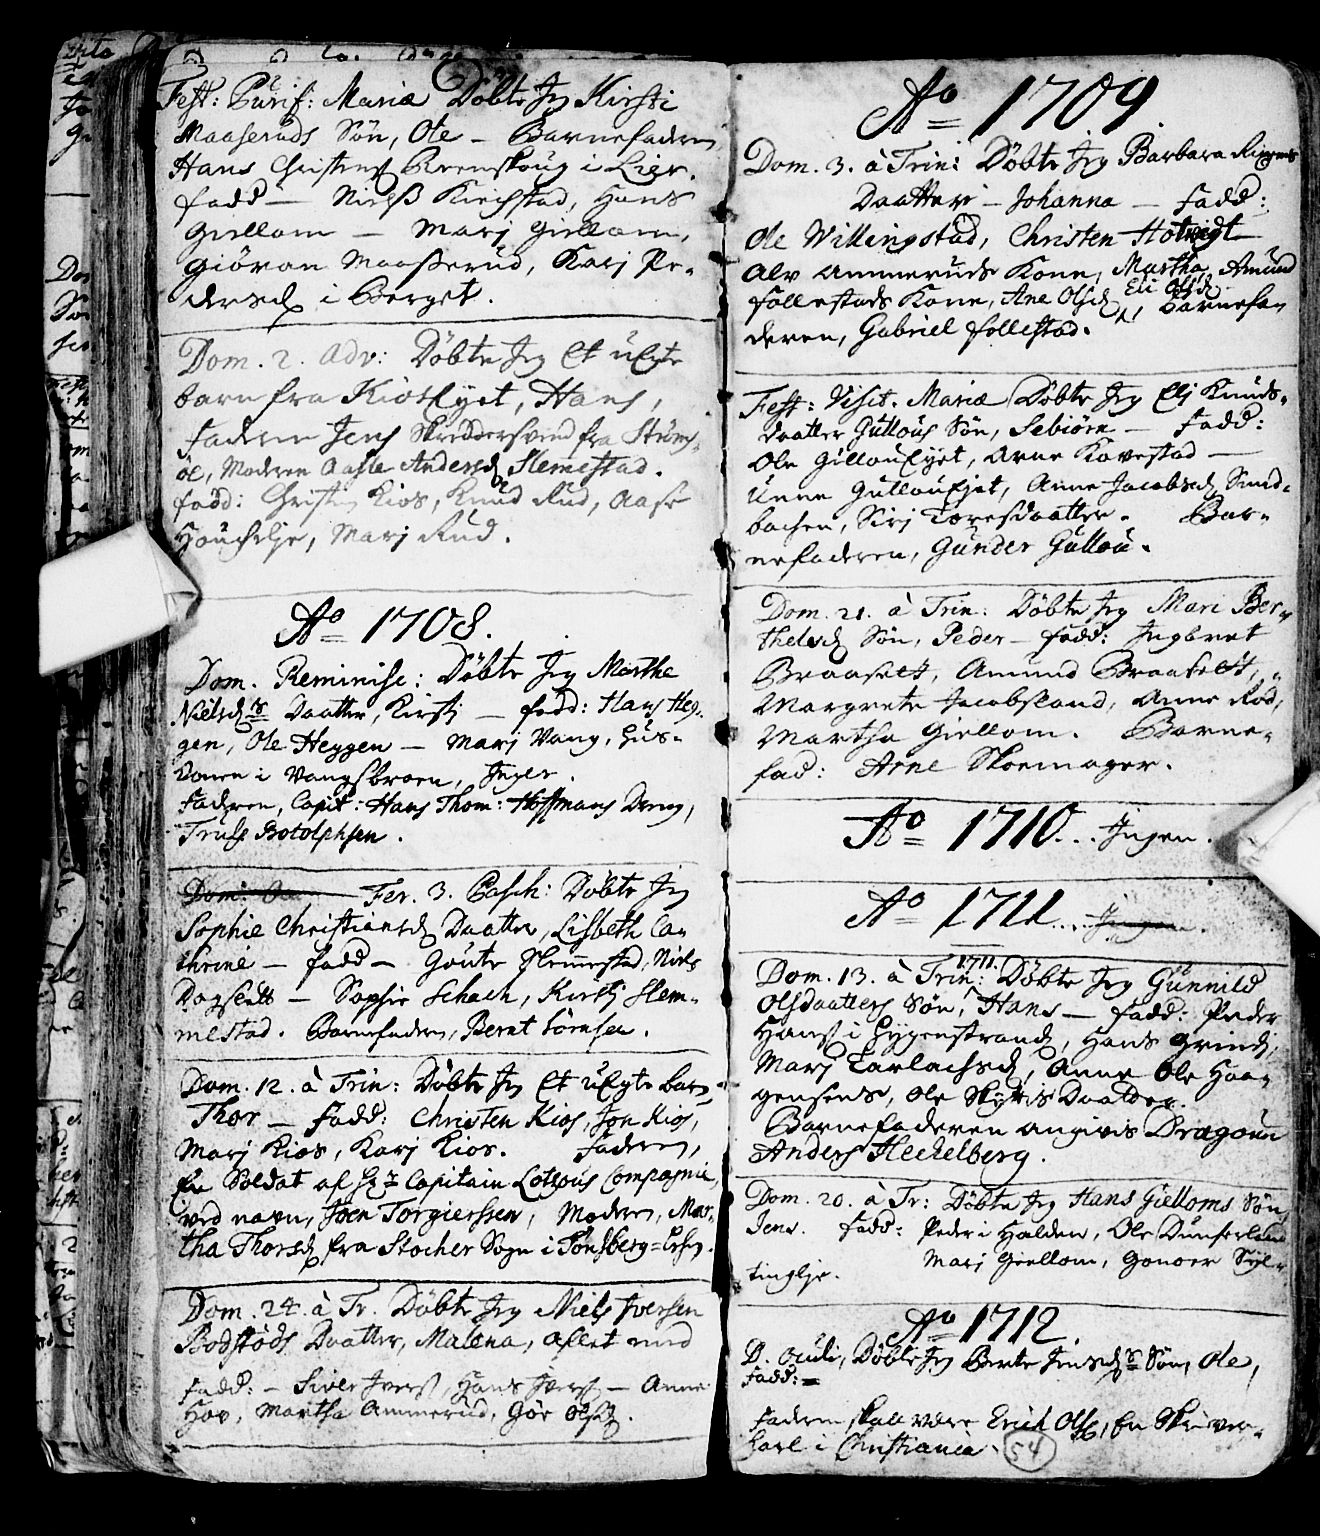 Fest: Purif: Mariæ Døbte Jeg Kirsti
Maaseruds Søn, Ole - Barnefaderen
Hans Christens i Lier.
fadd - Niels Kirchstad, Hans
Giellom - Marj Giellom,
Giøran Maasserud, Karj Pe-
dersd i Berget.
Dom. 2. Adv: Døbte Jeg Et uEgte
barn fra Kios Eyet, Hans,
faderen Jens Skreddersvend fra Strøms-
øe, Moderen Aasle Andersd Slemestad.
fadd: Christi Kios, Knud Rud, Aase
Marj Rud.
Ao 1708.
Dom. Reminisc: Døbte Jeg Marthe
Nielsd Daatter, Kirstj - fadd: Hans Heg-
gen, Ole Heggen - Marj Vang, Hus-
konen i Vangsbraaten, Inger.
faderen, Capit: Hans Thom: Hoffmans Dreng,
Truls Botolphsen.
Dom: Fer. 3. Pasch: Døbte Jeg
Sophie Christiansd Daatter, Lisbeth Ca-
thrine - fadd - Goute Slemmestad, Niels
Dagslett - Sophie Schach, Kirstj Slem-
mestad. Barnefaderen, Bernt Sørnsen.
Dom. 12. à Trin: Døbte Jeg Et uEgte barn
Thor - fadd: Christen Kios, Jon Kios,
Marj Kios, Karj Kios. faderen,
En Soldat af Hr Capitain Lotzous Compagnie,
ved navn, Joen Torgierssen, Moderen, Mar-
tha Thorsd fra Stocher Sogn i Tønsberg=
Dom. 24. à Tr. Døbte Jeg Niels Iversen
Bodstøds Daatter, Malena, aflet med
fadd: - Siver Ivers, Hans Ivers - Anne
Hov, Martha Ammerud, Gør Olsd.
Ao 1709.
Dom. 3. à Trin: Døbte Jeg Barbara
Daatter - Johanna - fadd:
Ole Willingstad, Christen Hotvigt
Alv Ammeruds Kone, Martha, Amund
follestads Kone, Ane Olsd, Eli Olsd, Barnefa-
deren, Gabriel follestad.
Fest: Visit. Mariæ Døbte Jeg Elj Knuds-
daatter Gullous Søn, Sebiørn - fadd:
Ole GillouEyet, Arne Kovestad -
Unne GullouEyet, Anne Jacobsd Sund-
bachen, Sirj Toresdaatter. Bar-
nefaderen, Gunder Gullou.
Dom. 21. à Trin: Døbte Jeg Mari Ber-
thelsd Søn, Peder - fadd: Ingbret
Braaset, Amund Braaset,
Margrete Jacobsland, Anne Rød,
Martha Giellom. Barne-
fad: Arne Skoemager.
Ao 1710... Ingen.
Ao 1711... Ingen.
Dom. 13. à Trin: 1711. Døbte Jeg Gunnild
Olsdaatters Søn, Hans - fadd: Peder
Hans i Gygenstrand, Hans Grind,
Marj Earlachsd, Anne Ole Haa-
gensens, Ole Skyttis Daatter.
Barnefaderen angivis Dragoun
Anders Heckelberg.
Dom. 20. à Tr: Døbte Jeg Hans Gielloms Søn,
Jens. fadd: Peder i Halden, Ole Dunserlan
Marj Giellom, Gonoer Syl-
tinglje.
Ao 1712.
D. Oculi, Døbte Jeg Berte Jensd Søn, Ole,
fadd: -
faderen skall være Erich Olss, En Skriver-
karl i Christiania.
54